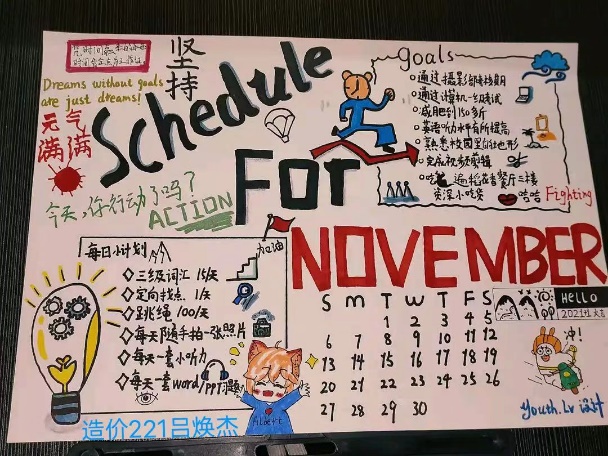 坚持
Schedule
For
NOVEMBER
Dreams without goals
are just dreams!
元气
满满
今天,你行动了吗?
ACTION
goals
通过摄影部考核期
通过计算机一级考试
减肥到150多斤
英语听力水平有所提高
熟悉校园里的地形
完成视频剪辑
吃 遍稻香餐厅三楼
资深小吃货 哈哈
Fighting
每日小计划
加油
三级词汇 15/天
定向找点 1/天
跳绳 100/天
每天随手拍一张照片
每天一套小听力
每天一套word/PPT习题
S M T W T F S
1 2 3 4 5
6 7 8 9 10 11 12
13 14 15 16 17 18 19
20 21 22 23 24 25 26
27 28 29 30
Hello
冲!
Albert
Youth.Lv 设计
造价221吕焕杰